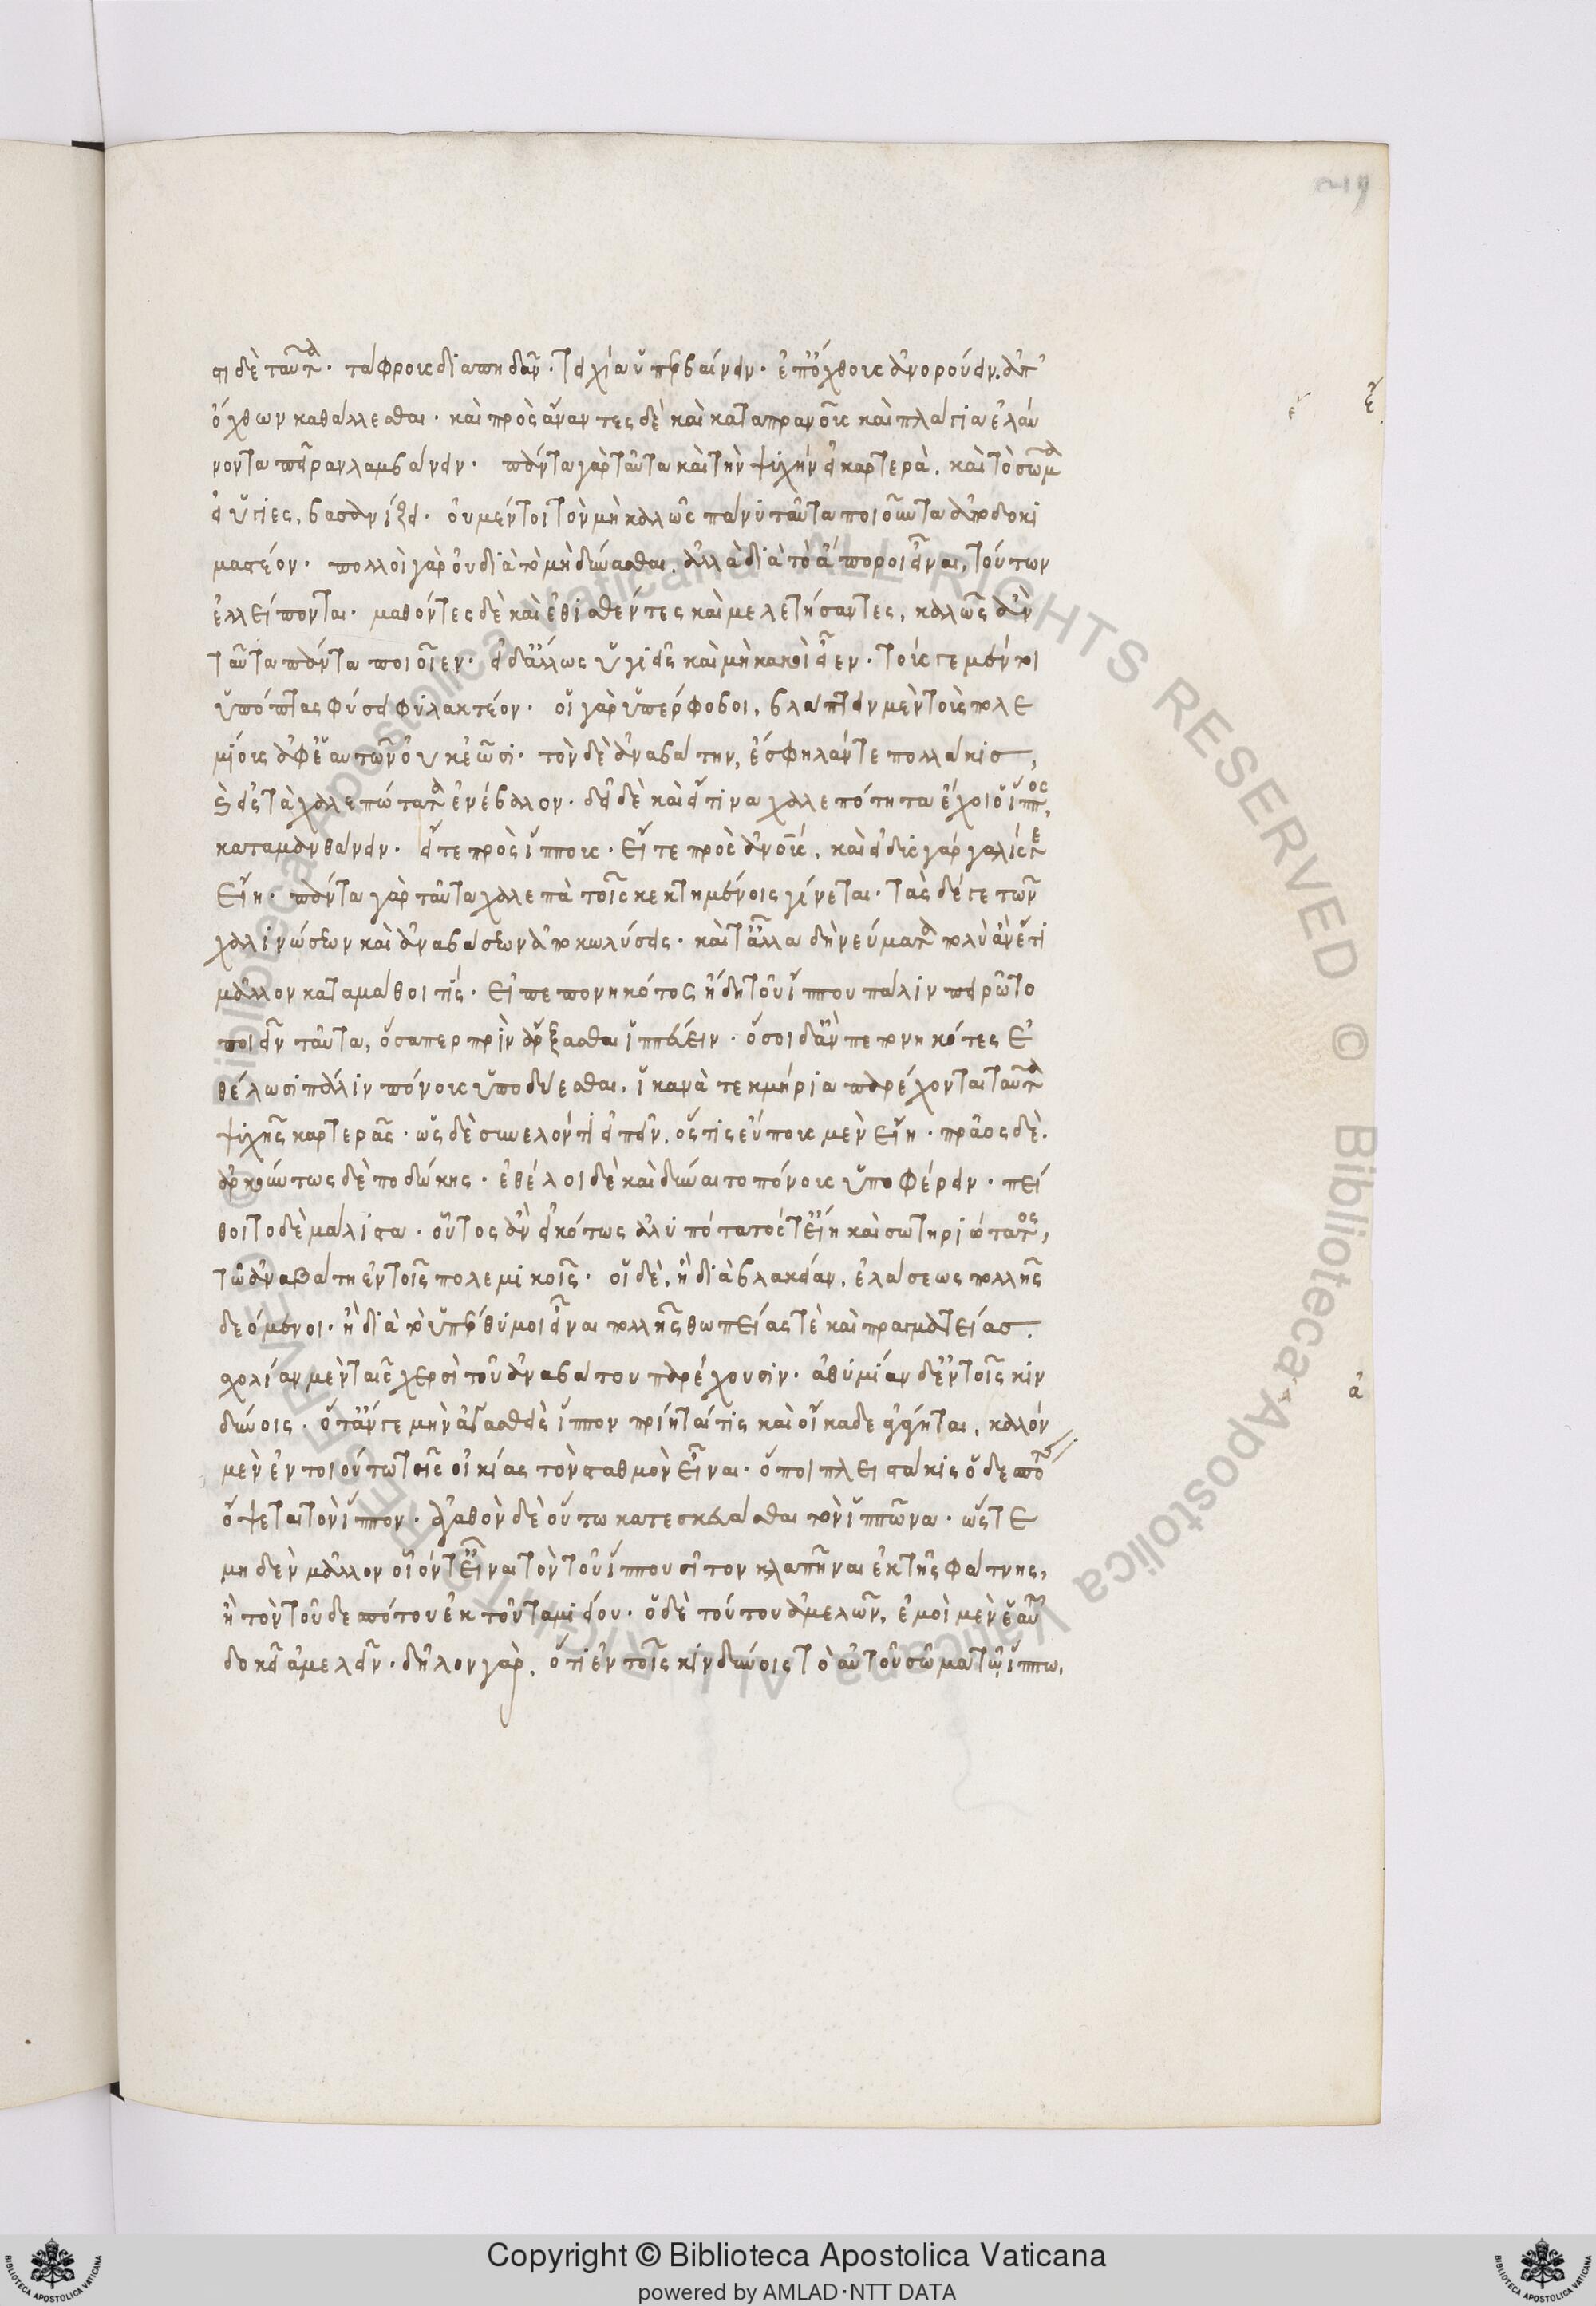 στι δὲ ταῦτα· τάφρους διαπηδᾶν· τειχία ὑπερβαίνειν· ἐπ' ὄχθους ἀνορούειν· ἀπ'
ὄχθων καθάλλεσθαι· καὶ πρὸς ἄναντες δὲ καὶ κατὰ πρανοῦς καὶ πλάγια ἐλαύ
νοντα πεῖραν λαμβάνειν· πάντα γὰρ ταῦτα καὶ τὴν ψυχὴν εἰ καρτερὰ, καὶ τὸ σῶμα
εἰ ὑγιὲς, βασανίζει· οὐ μέντοι τὸν μὴ καλῶς πάνυ ταῦτα ποιοῦντα ἀποδοκι
μαστέον· πολλοὶ γὰρ οὐ διὰ τὸ μὴ δύνασθαι, ἀλλὰ διὰ τὸ ἄποροι εἶναι, τούτων
ἐλλείπονται· μαθόντες δὲ καὶ ἐθισθέντες καὶ μελετήσαντες, καλῶς ἂν
ταῦτα πάντα ποιοῖεν· εἰ δ' ἄλλως ὑγιεῖς καὶ μὴ κακοὶ εἶεν· τούς γε μέντοι
ὑπόπτας φύσει φυλακτέον· οἱ γὰρ ὑπέρφοβοι, βλάπτειν μὲν τοὺς πολε
μίους ἀφ' ἑαυτῶν οὐκ ἐῶσι· τὸν δὲ ἀναβάτην, ἔσφηλάν τε πολλάκις,
καὶ εἰς τὰ χαλεπώτατα ἐνέβαλον· δεῖ δὲ καὶ εἴ τινα χαλεπότητα ἔχοι ὁ ἵππος,
καταμανθάνειν· εἴτε πρὸς ἵππους· εἴτε πρὸς ἀνους, καὶ εἰ δυσγάργαλίς τε
εἴη· πάντα γὰρ ταῦτα χαλεπὰ τοῖς κεκτημένοις γίνεται· τὰς δέ γε τῶν
χαλινώσεων καὶ ἀναβάσεων ἀποκωλύσεις· καὶ τἄλλα δὴ νεύματα πολὺ ἂν ἔτι
μᾶλλον καταμάθοι τίς· εἰ πεπονηκότος ἤδη τοῦ ἵππου πάλιν πειρῷτο
ποιεῖν ταῦτα, ὅσαπερ πρὶν ἄρξασθαι ἱππεύειν· ὅσοι δ' ἂν πεπονηκότες ἐ
θέλωσι πάλιν πόνους ὑποδύεσθαι, ἱκανὰ τεκμήρια παρέχονται ταῦτα
ψυχῆς καρτερᾶς· ὡς δὲ συνελόντι εἰπεῖν, ὅστις εὔπους μὲν εἴη· πρᾶος δὲ·
ἀρκούντως δὲ ποδώκης· ἐθέλοι δὲ καὶ δύναιτο πόνους ὑποφέρειν· πεί
θοιτο δὲ μάλιστα· οὗτος ἂν εἰκότως ἀλυπότατός τ' εἴη καὶ σωτηριώτατος,
τῷ ἀναβάτῃ ἐν τοῖς πολεμικοῖς· οἱ δὲ, ἢ διὰ βλακείαν, ἐλάσεως πολλῆς
δεόμενοι· ἢ διὰ τὸ ὑπέρθυμοι εἶναι πολλῆς θωπείας τὲ καὶ πραγματείας,
ἀσχολίαν μὲν ταῖς χερσὶ τοῦ ἀναβάτου παρέχουσιν· ἀθυμίαν δ' ἐν τοῖς κιν
δύνοις· ὅταν γε μὴν ἀγασθεὶς ἵππον πρίηταί τις καὶ οἴκαδε ἀγάγηται, καλὸν
μὲν ἐν τοιούτῳ τῆς οἰκίας τὸν σταθμὸν εἶναι· ὅποι πλειστάκις ὁ δεσπότης
ὄψεται τὸν ἵππον· ἀγαθὸν δὲ οὕτω κατεσκευάσθαι τὸν ἱππῶνα· ὥστε
μηδὲν μᾶλλον οἷόν τ' εἶναι τὸν τοῦ ἵππου σῖτον κλαπῆναι ἐκ τῆς φάτνης,
ἢ τὸν τοῦ δεσπότου ἐκ τοῦ ταμιείου· ὁ δὲ τούτου ἀμελῶν, ἐμοὶ μὲν ἑαυτοῦ
δοκεῖ ἀμελεῖν· δῆλον γὰρ, ὅτι ἐν τοῖς κινδύνοις τὸ αὑτοῦ σῶμα τῷ ἵππῳ,
Copyright © Biblioteca Apostolica Vaticana
powered by AMLAD·NTT DATA